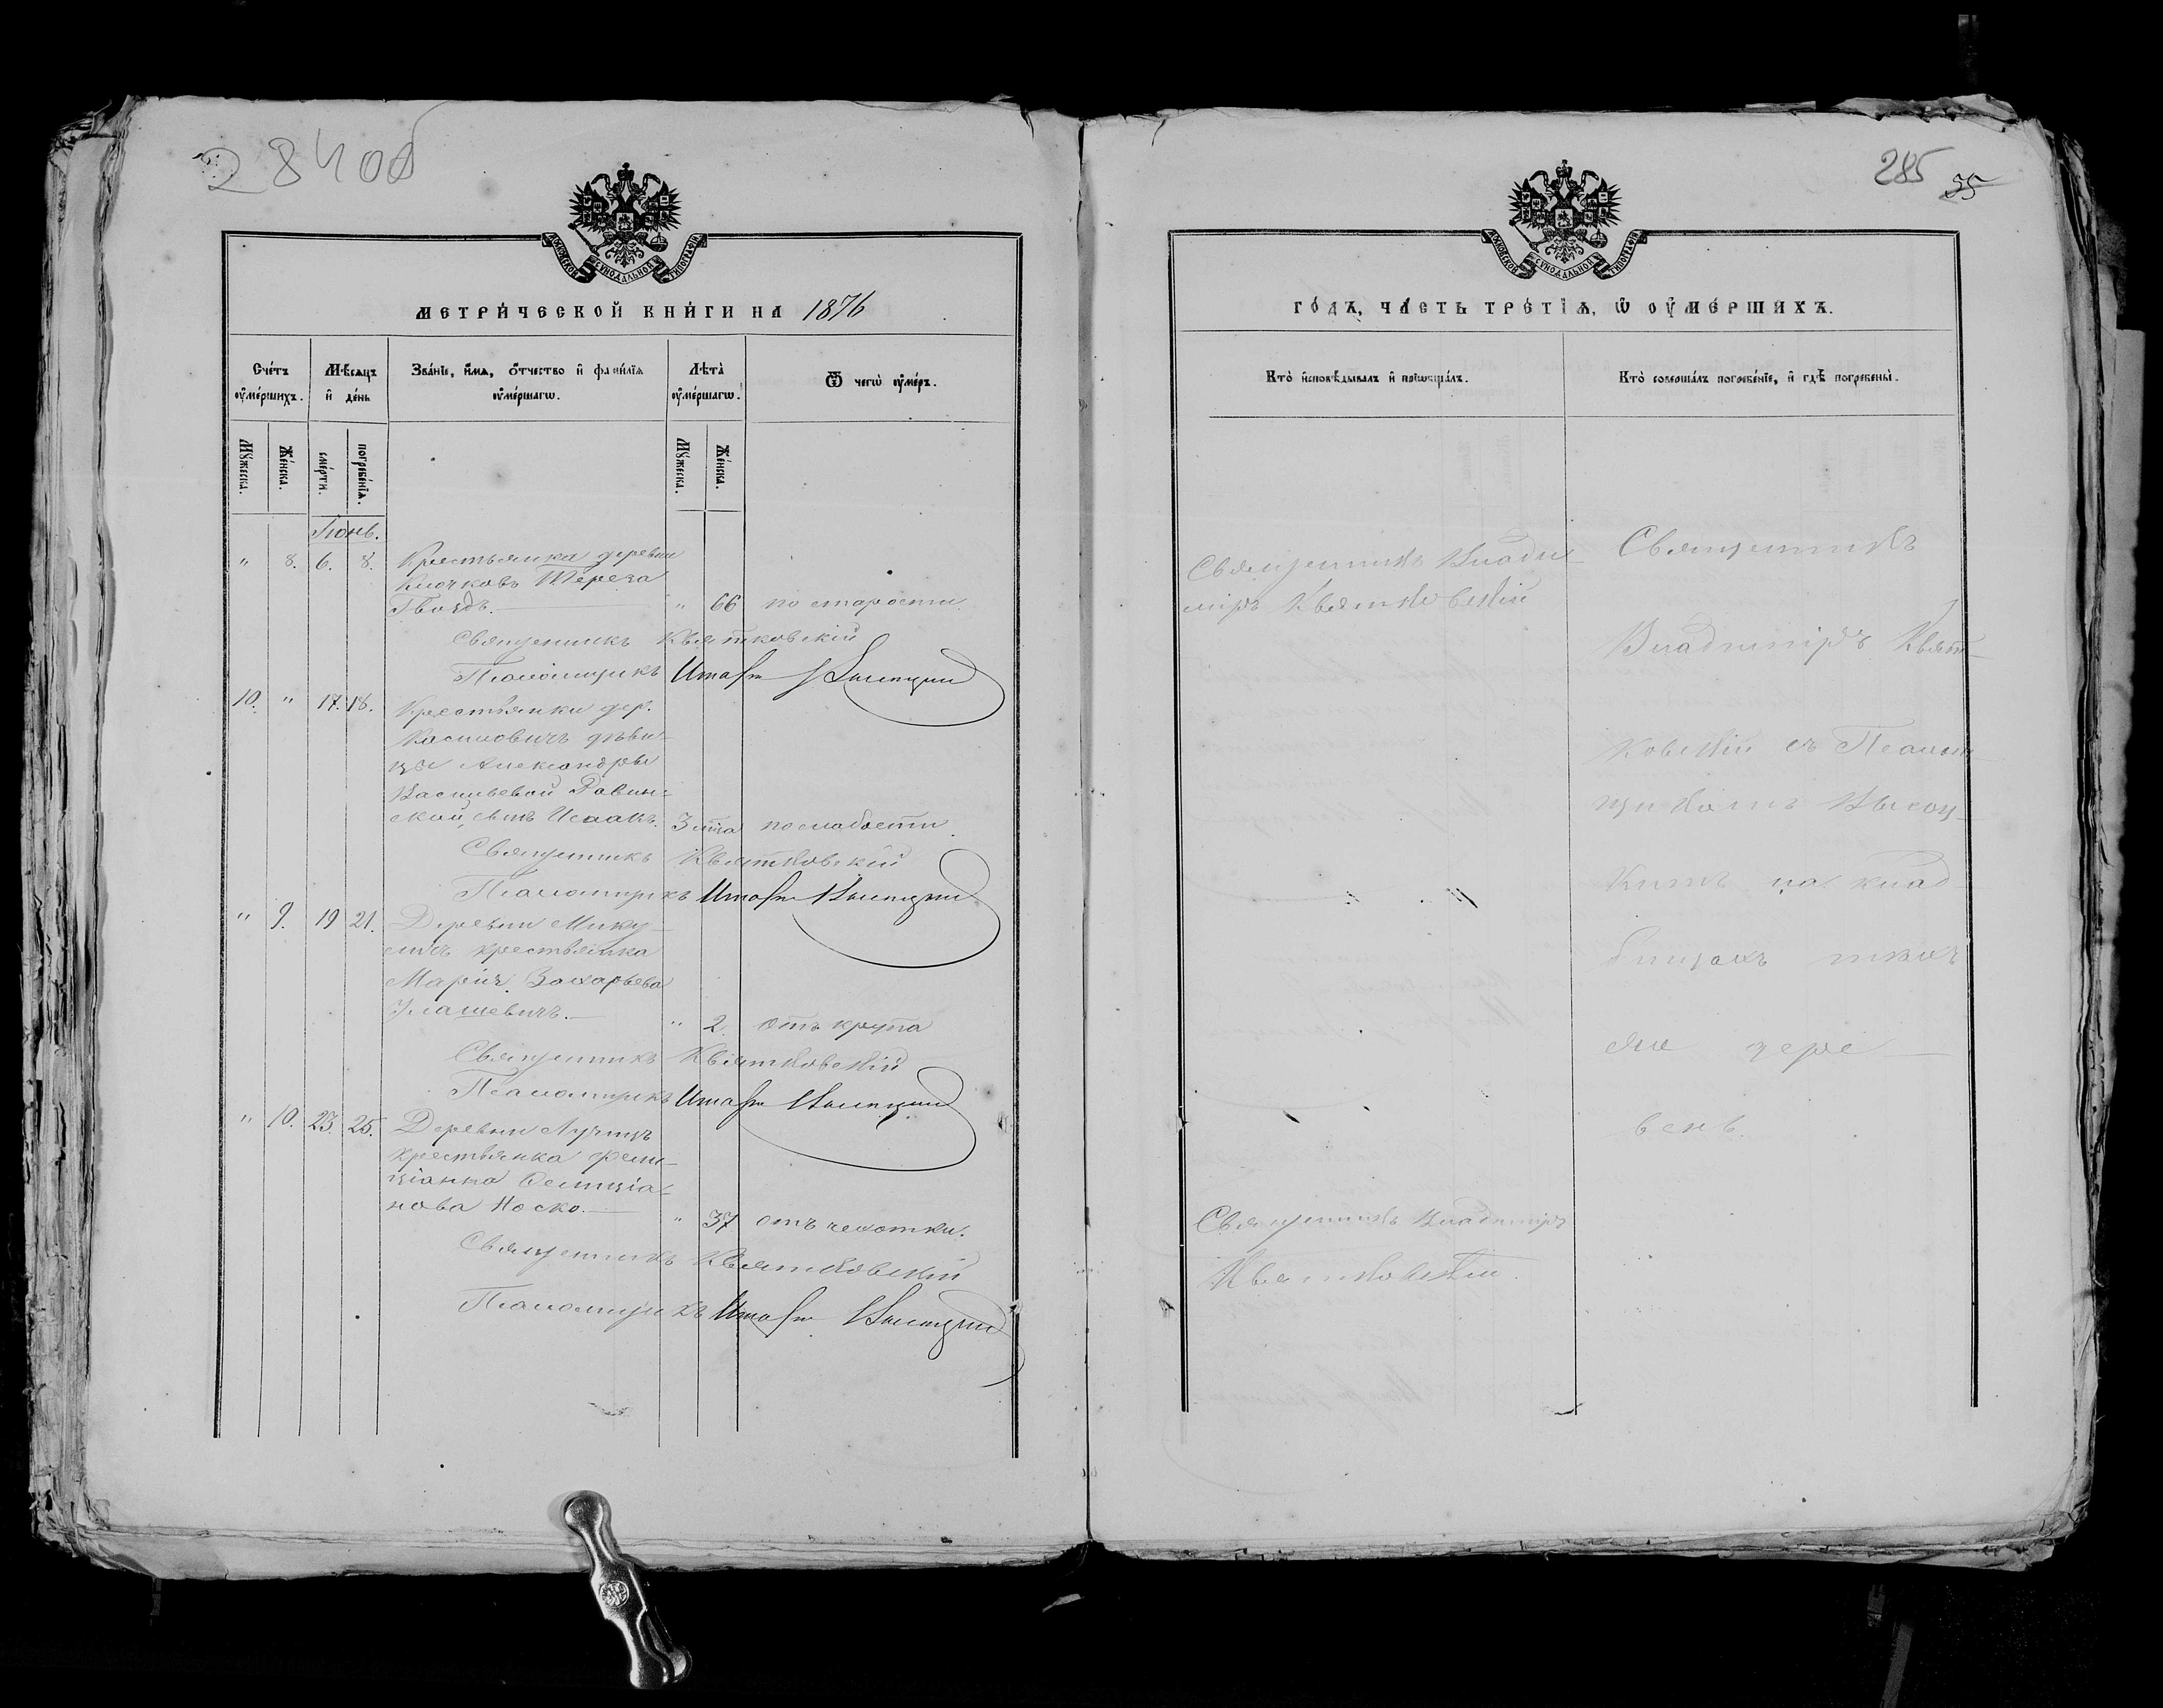 284 об
МОСКОВСКОЙ СѴНОДАЛЬНОЙ ТИПОГРАФІИ
МЕТРИ́ЧЕСКОЙ КНИ́ГИ НА 1876
Счéтъ ᲂу҆мéршихъ.
Мѣ́сяцъ и҆ дéнь
Звáнїе, и҆́мѧ, ѻ҆́тчество и҆ фами́лїѧ ᲂу҆мéршагѡ.
Лѣ́та ᲂу҆мéршагѡ.
Ѿ чегѡ̀ ᲂу҆́меръ.
Мꙋ́жеска.
Жéнска.
смéрти.
погребéнїѧ.
Мꙋ́жеска.
Жéнска.
Іюнь.
" 8. 6. 8. Крестьянка деревни
Клочковъ Тереза
Гвоздь. " 66 по старости
Священникъ Квятковскій
Псаломщикъ
10. " 17. 18. Крестьянки дер.
дѣви-
цы Александры
Васильевой Равин-
ской, сынъ Исаакъ. 3 лѣта по слабости
Священникъ Квятковскій
Псаломщикъ
" 9. 19 21. Деревни Мику-
личъ крестьянка
Марія Захарьева
" 2. отъ крупа
Священникъ Квятковскій
Псаломщикъ
" 10. 23. 25. Деревни Лучицъ
крестьянка Фели-
ціанна Фелиціа-
нова Носко. " 37 отъ чахотки.
Священникъ Квятковскій
Псаломщикъ
285 35
МОСКОВСКОЙ СѴНОДАЛЬНОЙ ТИПОГРАФІИ
ГÓДЪ, ЧÁСТЬ ТРÉТЇѦ, Ѡ҆ ОУ҆МÉРШИХЪ.
Ктò и҆сповѣ́дывалъ и҆ прїѡбщáлъ.
Ктò совершáлъ погребéнїе, и҆ гдѣ̀ погребены̀.
Священникъ Влади-
міръ Квятковскій
Священникъ
Владиміръ Квят-
ковскій съ Псалом-
щикомъ Высоц-
кимъ на клад-
бищахъ тѣхъ
же дере-
вень.
Священникъ Владиміръ
Квятковскій.